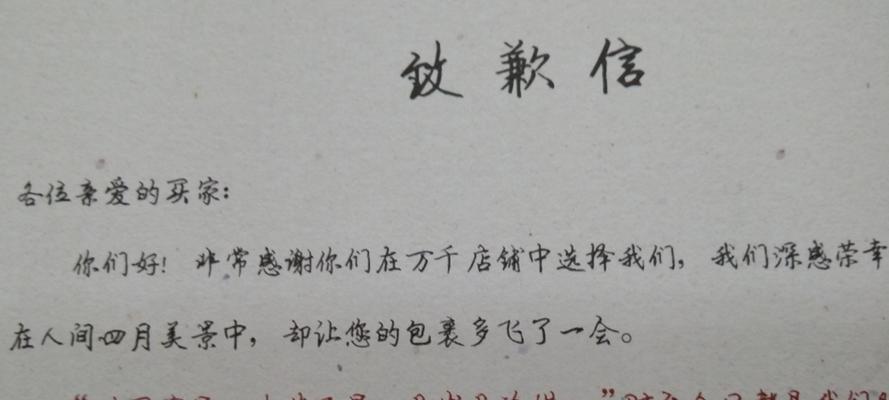 致歉信
各位亲爱的买家:
你们好!非常感谢你们在万千店铺中选择我们,我们深感荣幸
在人间四月美景中,却让您的包裹多飞了一会。